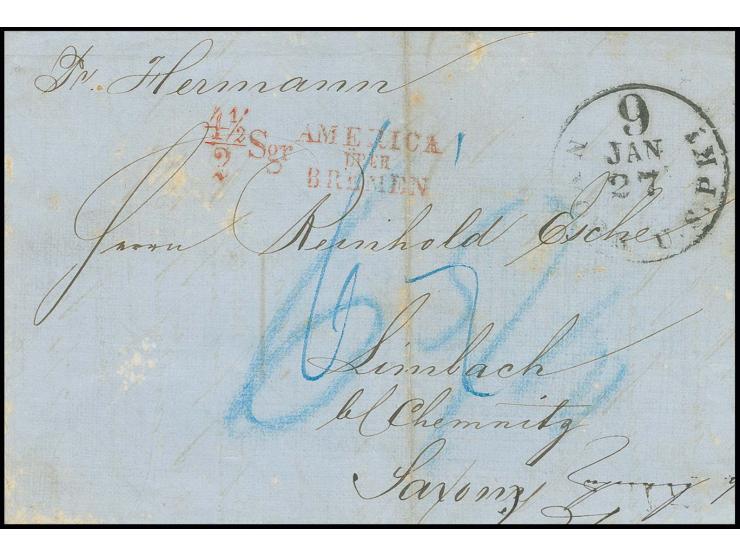 Pr. Hermann
4½/2 Sgr
AMERICA
ÜBER
BREMEN
9
JAN
27
U.S.PKT
Herrn Reinhold Esche
Limbach
b/Chemnitz
Saxony